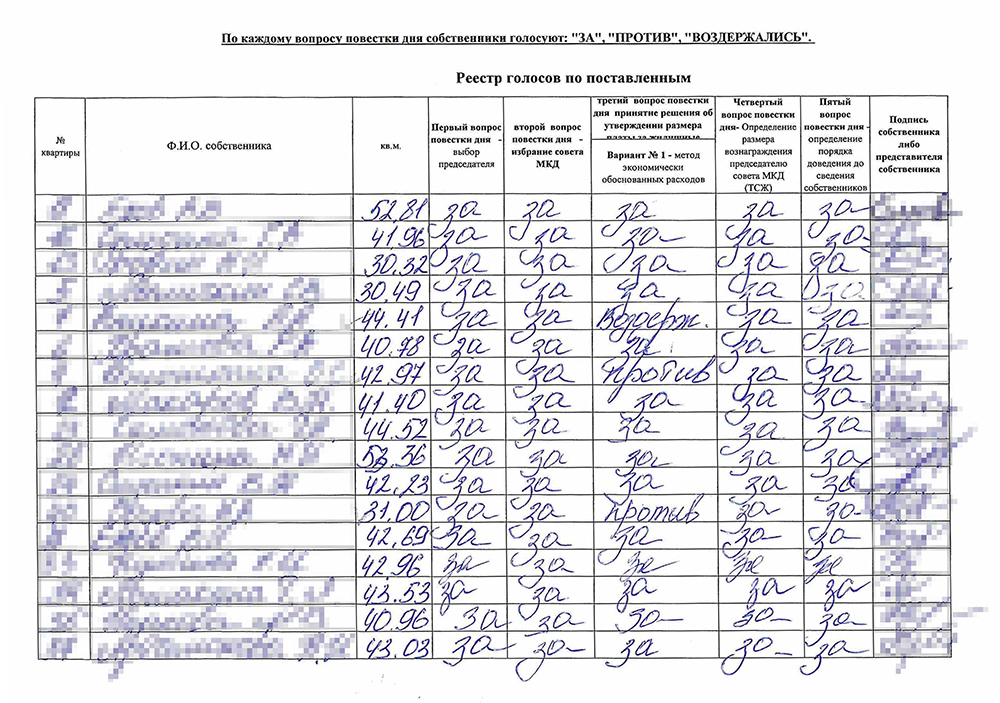 По каждому вопросу повестки дня собственники голосуют: "ЗА", "ПРОТИВ", "ВОЗДЕРЖАЛИСЬ".
Реестр голосов по поставленным
№
квартиры
Ф.И.О. собственника
кв.м.
Первый вопрос
повестки дня -
выбор
председателя
второй вопрос
повестки дня -
избрание совета
МКД
третий вопрос повестки
дня принятие решения об
утверждении размера
платы за жилищные
Вариант № 1 - метод
экономически
обоснованных расходов
Четвертый
вопрос повестки
дня- Определение
размера
вознаграждения
председателю
совета МКД
(ТСЖ)
Пятый
вопрос
повестки дня -
определение
порядка
доведения до
сведения
собственников
Подпись
собственника
либо
представителя
собственника
52,81 за за за за за
41.96 за за за за за
30.32 за за за за за
30.49 за за за за за
44.41 за за Воздерж. за за
40.78 за за за за за
42.97 за за против за за
41.40 за за за за за
44.52 за за за за за
53.36 за за за за за
42,23 за за за за за
31.00 за за против за за
42,69 за за за за за
42.96 за за за за за
43.53 за за за за за
40.96 за за за за за
43.03 за за за за за